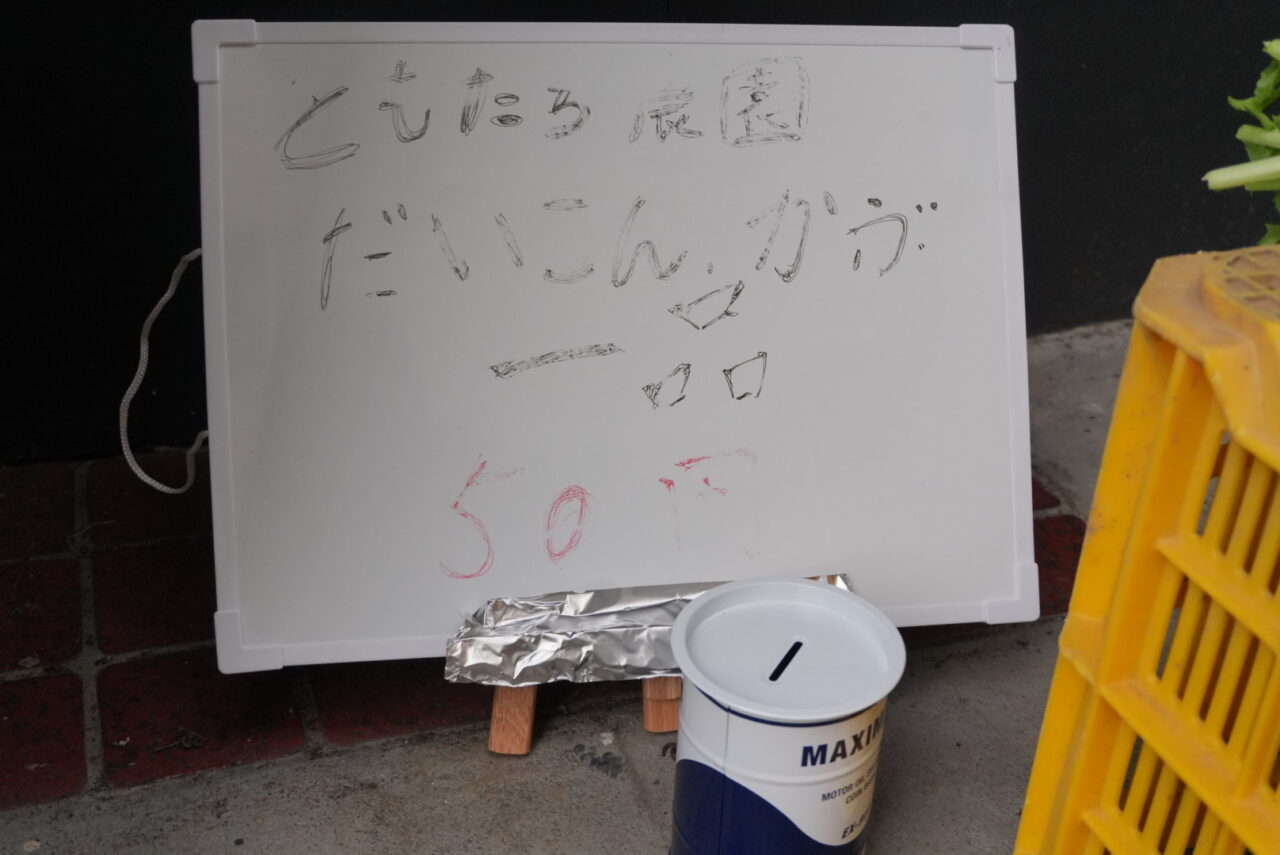 ともたろ農園
だいこん、かぶ
一品
50円
MAXIM
MOTOR OIL
COIN B
EX-